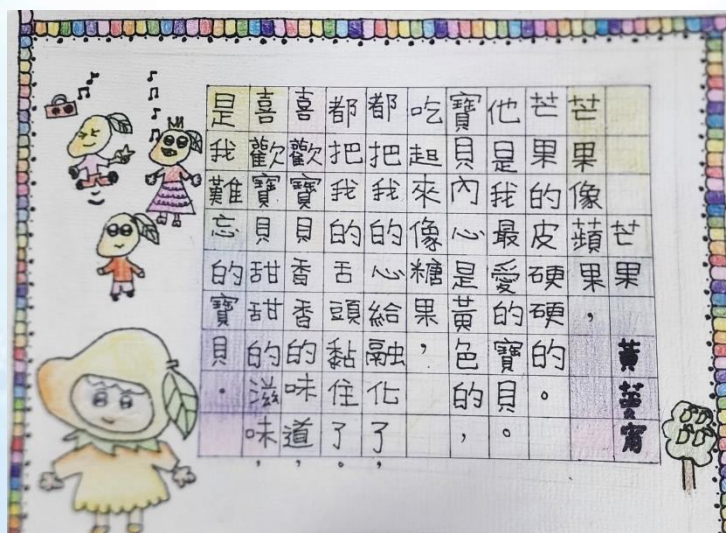 芒果 黃
芒果像蘋果，
芒果的皮硬硬的。
他是我最愛的寶貝。
寶貝內心是黃色的，
吃起來像糖果，
都把我的心給融化了，
都把我的舌頭黏住了。
喜歡寶貝香香的味道，
喜歡寶貝甜甜的滋味，
是我難忘的寶貝。